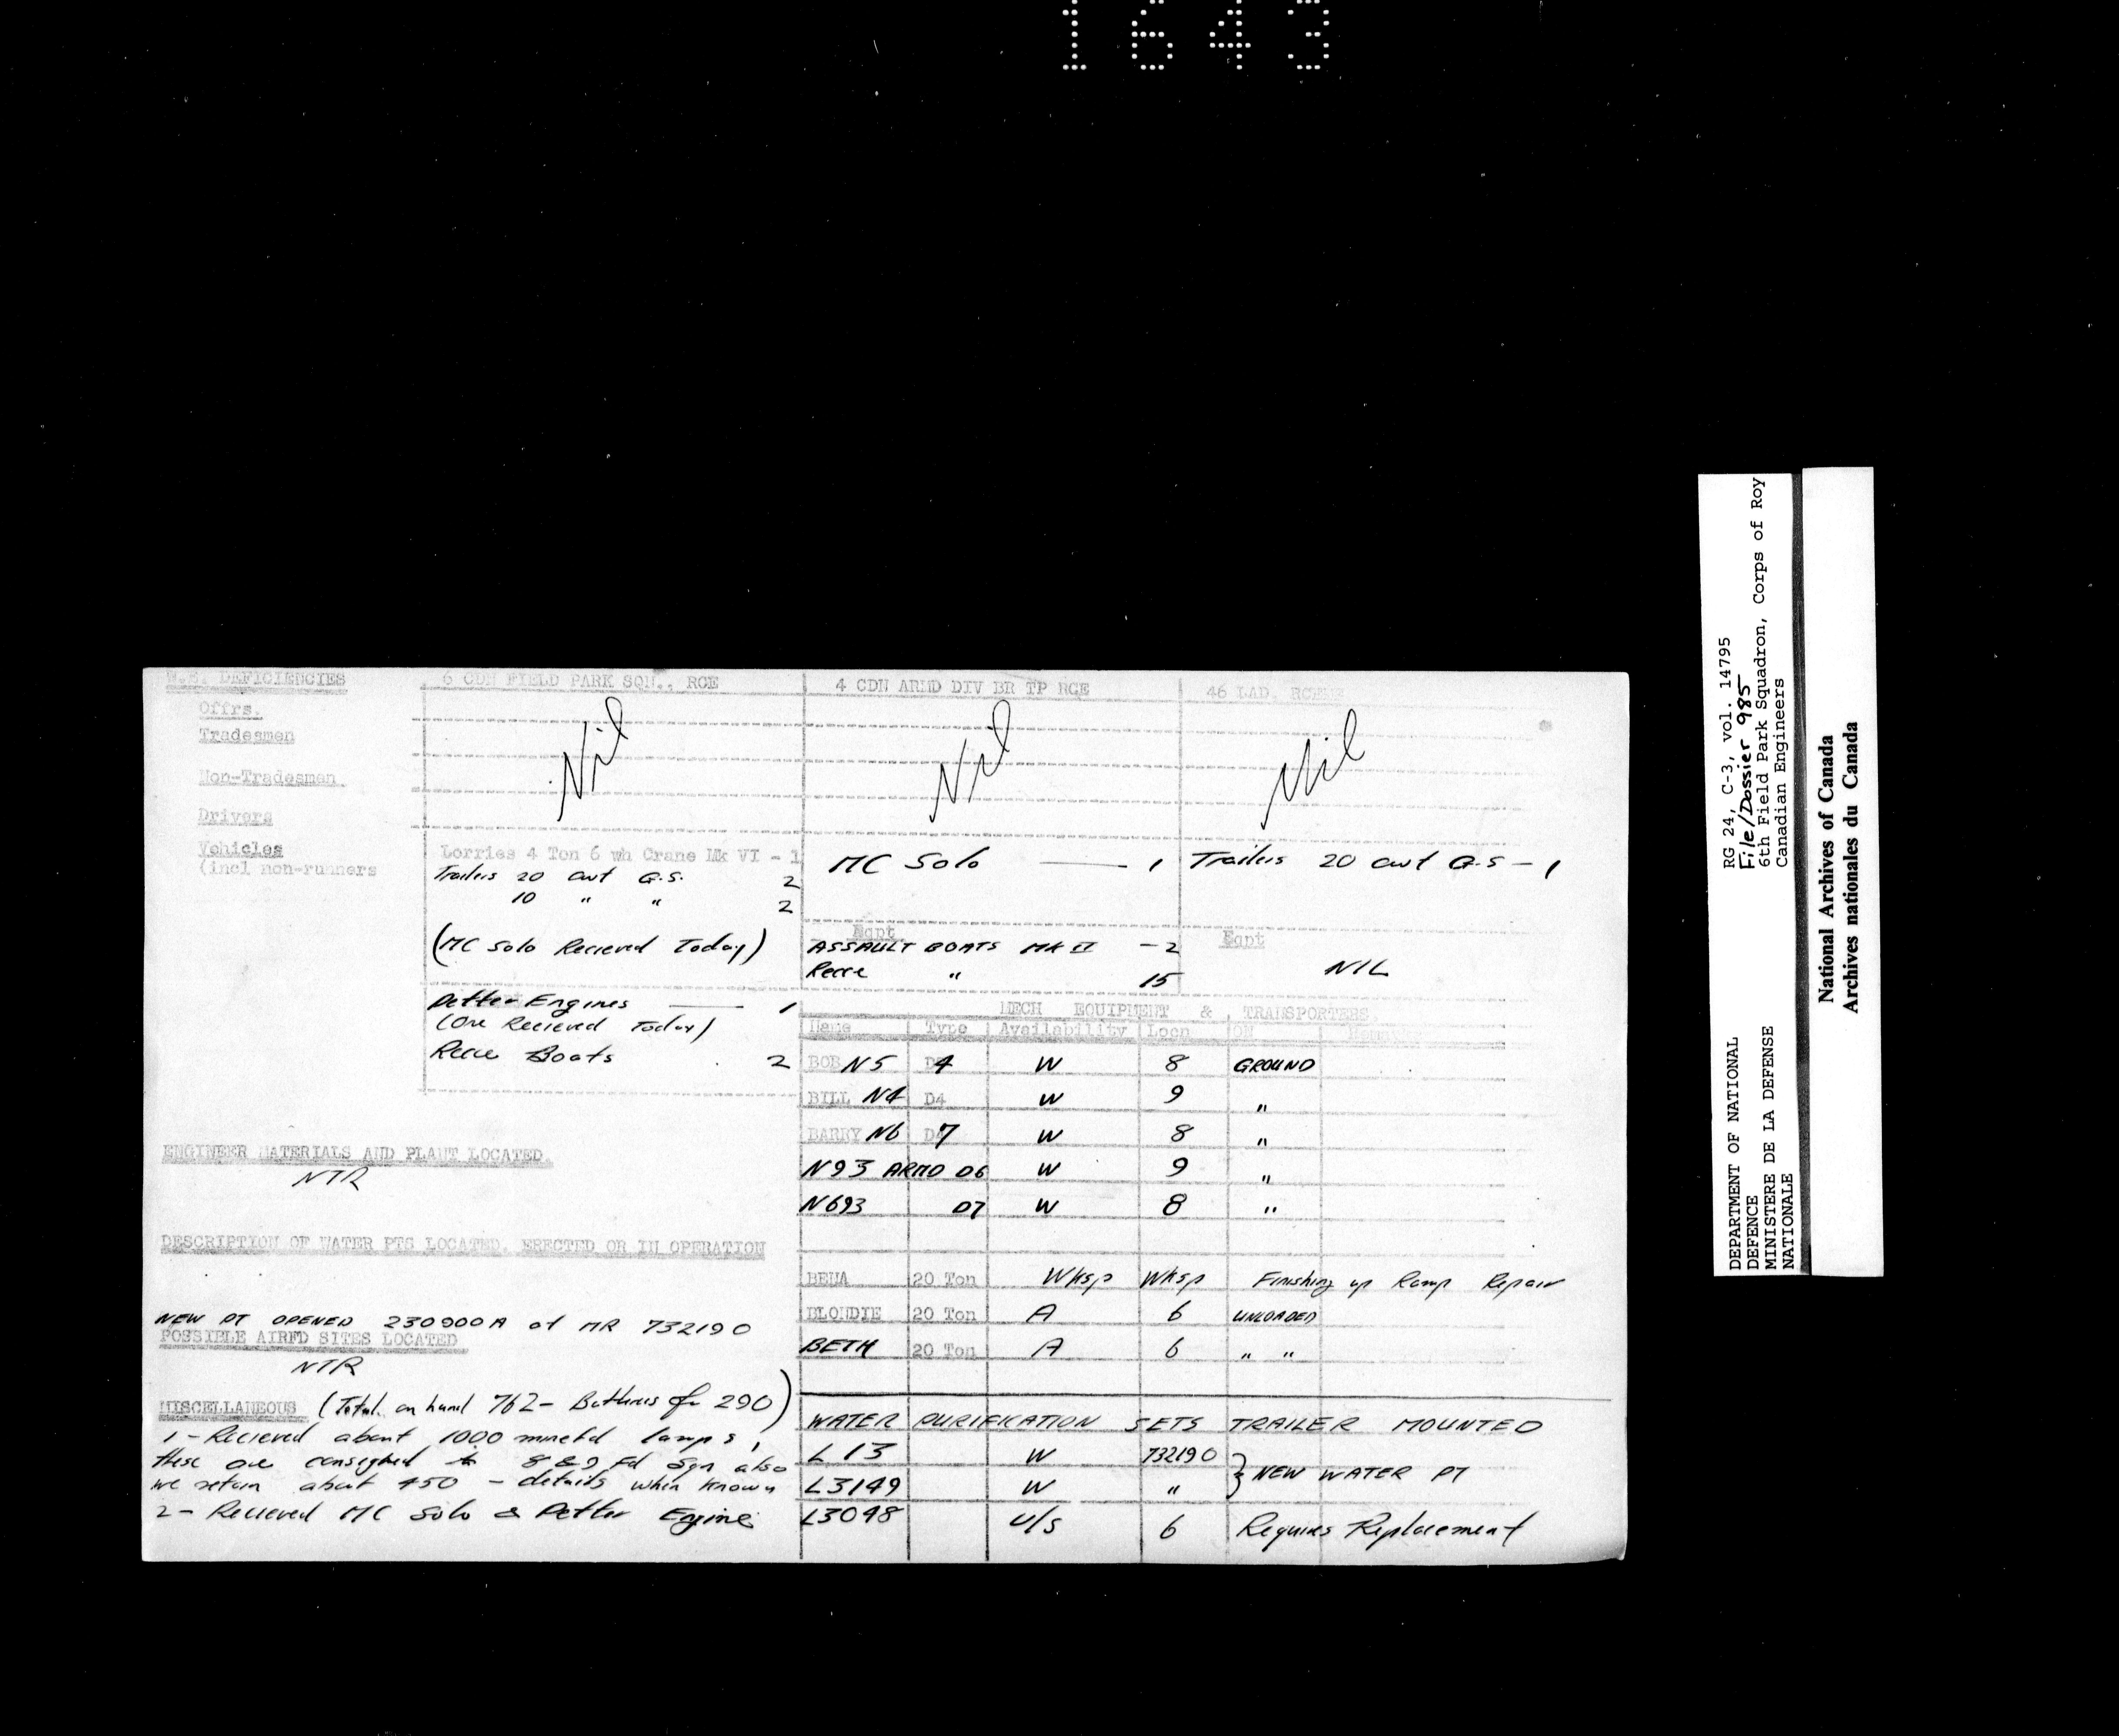 1643
W.E. DEFICIENCIES
Offrs.
Tradesmen
Non-Tradesmen
Drivers
Vehicles
(incl non-runners
6 CDN FIELD PARK SQN., RCE
Nil
Lorries 4 Ton 6 wh Crane Mk VI - 1
Trailers 20 cwt G.S. 2
10 " " 2
(MC Solo Recieved Today)
Petter Engines — 1
(One Recieved Today)
Recce Boats 2
4 CDN ARMD DIV BR TP RCE
Nil
MC Solo — 1
Eqpt
ASSAULT BOATS MK II - 2
Recce " 15
46 LAD. RCEME
Nil
Trailers 20 cwt G.S - 1
Eqpt
NIL
MECH EQUIPMENT & TRANSPORTERS.
Name Type Availability Locn ON
BOB N5 D4 W 8 GROUND
BILL N4 D4 W 9 "
BARRY N6 D7 W 8 "
N93 ARMD D6 W 9 "
N693 D7 W 8 "
BEUA 20 Ton Wksp Wksp Finishing up Ramp Repair
BLONDIE 20 Ton A 6 UNLOADED
BETH 20 Ton A 6 " "
WATER PURIFICATION SETS TRAILER MOUNTED
L13 W 732190 } NEW WATER PT
L3149 W "
L3048 U/S 6 Requires Replacement
ENGINEER MATERIALS AND PLANT LOCATED.
NTR
DESCRIPTION OF WATER PTS LOCATED, ERECTED OR IN OPERATION
NEW PT OPENED 230900A at MR 732190
POSSIBLE AIRFD SITES LOCATED
NTR
MISCELLANEOUS (Total on hand 762 - Batteries for 290)
1 - Recieved about 1000 minefd lamps,
these are consigned to 8 & 9 Fd Sqn also
we retain about 450 - details when known
2 - Recieved MC Solo & Petter Engine
RG 24, C-3, vol. 14795
File/Dossier 985
6th Field Park Squadron, Corps of Roy
Canadian Engineers
DEPARTMENT OF NATIONAL
DEFENCE
MINISTERE DE LA DEFENSE
NATIONALE
National Archives of Canada
Archives nationales du Canada